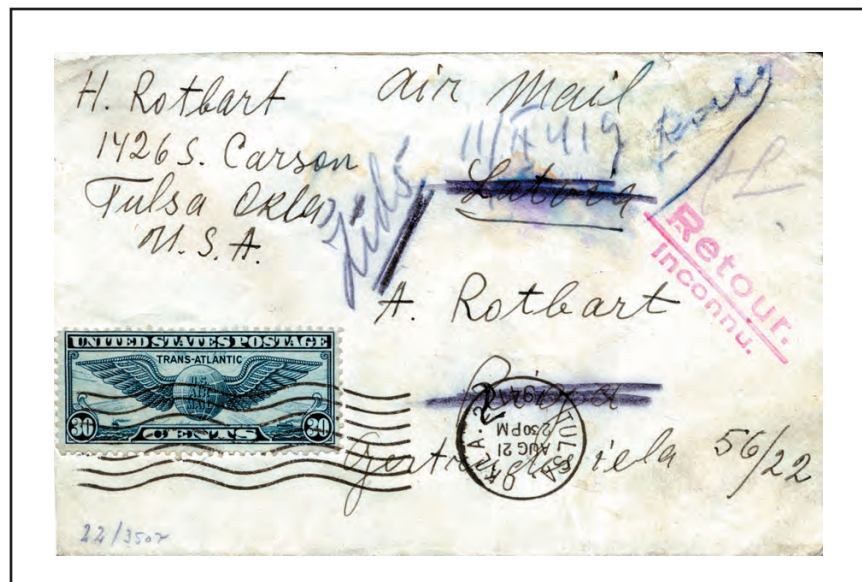 H. Rotbart
1426 S. Carson
Tulsa Okla.
U.S.A.
air Mail
Latvia
Retour.
Inconnu.
A. Rotbart
Riga
iela 56/22
UNITED STATES POSTAGE
TRANS-ATLANTIC
U.S.
AIR
MAIL
30 CENTS 30
TULSA, OKLA.
AUG 21
2 30 PM
194
22/350r